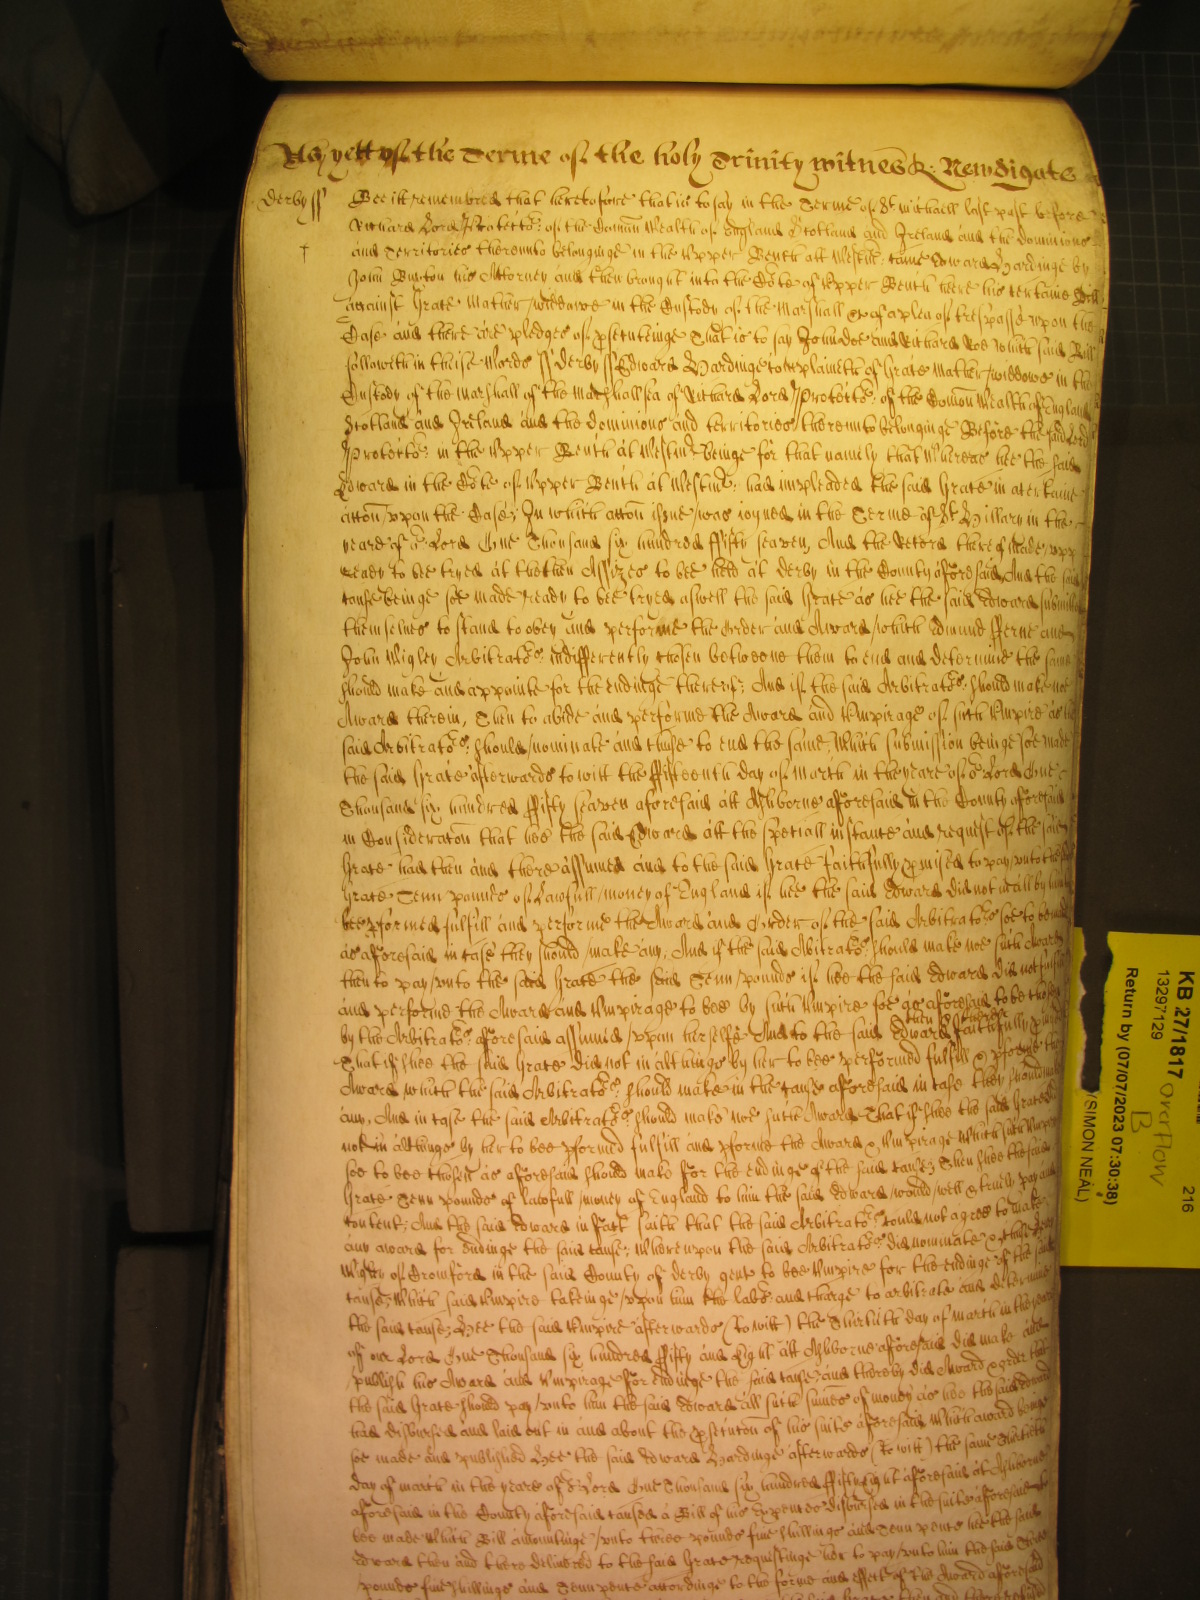 As yett of the Terme of the holy Trinity witnes R: Newdigate
Derby ss Bee itt remembred that heretofore that is to say in the Terme of St michaell last past before
Richard Lord Protector: of the Comon Wealth of England Scotland and Ireland and the dominions
and Territories thereunto belonginge in the Upper Bench att Westmr: came Edward Hardinge by
John Buxton his Attorney and then brought into the Cote of Upper Bench here his certaine Bill
against Grace Mather widdowe in the Custody of the Marshall &c of a plea of trespasse upon the
Case and there are pledges of psecutinge That is to say John Doe and Richard Roe which said Bill
followeth in theise Words ss Derby ss Edward Hardinge complaineth of Grace Mather widdowe in the
Custody of the marshall of the marshallsea of Richard Lord Protector: of the Comon Wealth of England
Scotland and Ireland and the dominions and territories thereunto belonginge Before the said Lord
Protector: in the Upper Bench at Westmr beinge for that namely that Whereas hee the said
Edward in the Cote of Upper Bench at Westmr: had impleaded the said Grace in a certaine
accon upon the Case; In which accon issue was ioyned in the Terme of St Hillary in the
yeare of or Lord One Thousand six hundred ffifty seaven, And the Record thereof made upp
ready to bee tryed at the then Assizes to bee held at Derby in the County aforesaid, And the said
cause beinge soe made ready to bee tryed aswell the said Grace as hee the said Edward submitted
themselves to stand to obey and performe the Order and Award which Edmund fferne and
John Wigley Arbitrators: indifferently chosen betweene them to end and determine the same
should make and appointe for the endinge thereof; And if the said Arbitrators: should make noe
Award therein, Then to abide and performe the Award and Umpirage of such Umpire as the
said Arbitrators: should nominate and chuse to end the same; Which submission beinge soe made
the said Grace afterwards to witt the ffifteenth day of march in the yeare of or Lord One
Thousand six hundred ffifty seaven aforesaid att Ashborne aforesaid in the County aforesaid
in Consideracon that hee the said Edward att the speciall instance and request of the said
Grace had then and there assumed and to the said Grace faithfully pmised to pay unto the said
Grace Tenn pounds of Lawfull money of England if hee the said Edward did not in all by him to
bee pformed fulfill and performe the Award and Order of the said Arbitrators soe to be made
as aforesaid in case they should make any, And if the said Abitrators: should make noe such Award
then to pay unto the said Grace the said Tenn pounds if hee the said Edward did not fulfill
and performe the Award and Umpirage to bee by such Umpire soe as aforesaid to be chosen
by the Arbitrators: aforesaid assumed upon herselfe And to the said Edward then & there faithfully pmised
That if shee the said Grace did not in all things by her to bee performed fulfill & pforme the
Award which the said Arbitrators: should make in the cause aforesaid in case they should make
any, And in case the said Arbitrators: should make noe such Award That if shee the said Grace did
not in all things by her to bee pformed fulfill and pforme the Award & Umpirage Which such Umpire
soe to bee chosen as aforesaid should make for the endinge of the said cause; Then shee the said
Grace Tenn pounds of lawfull money of England to him the said Edward would well & truely pay and
content; And the said Edward in fact saith that the said Arbitrators: could not agree to make
any award for endinge the said cause; Whereupon the said Arbitrators: did nominate & chuse
Wigley of Cromford in the said County of Derby gent to bee Umpire for the endinge of the said
cause; Which said Umpire takeinge upon him the labor: and charge to arbitrate and determine
the said cause; Hee the said Umpire afterwards (to witt) the Thirtieth day of march in the yeare
of our Lord One Thousand six hundred ffifty and Eight att Ashborne aforesaid did make and
publish his Award and Umpirage for endinge the said cause; and thereby did Award & order that
the said Grace should pay unto him the said Edward all such sumes of money as hee the said Edward
had disbursed and laid out in and about the psecucon of his suite aforesaid Which award beinge
soe made and published Hee the said Edward Hardinge afterwards (to witt) the same Thirtieth
day of march in the yeare of or Lord One Thousand six hundred ffifty eight aforesaid at Ashborne
aforesaid in the County aforesaid caused a Bill of his Expences disbursed in the suite aforesaid to
bee made Which Bill amountinge unto three pounds five shillings and Tenn pence hee the said
Edward then and there delivered to the said Grace requestinge her to pay unto him the said Three
pounds five shillings and Tenn pence accordinge to the forme and effect of the Award aforesaid
KB 27/1817 Overflow
B
13297129
216
Return by (07/07/2023 07:30:38)
(SIMON NEAL)